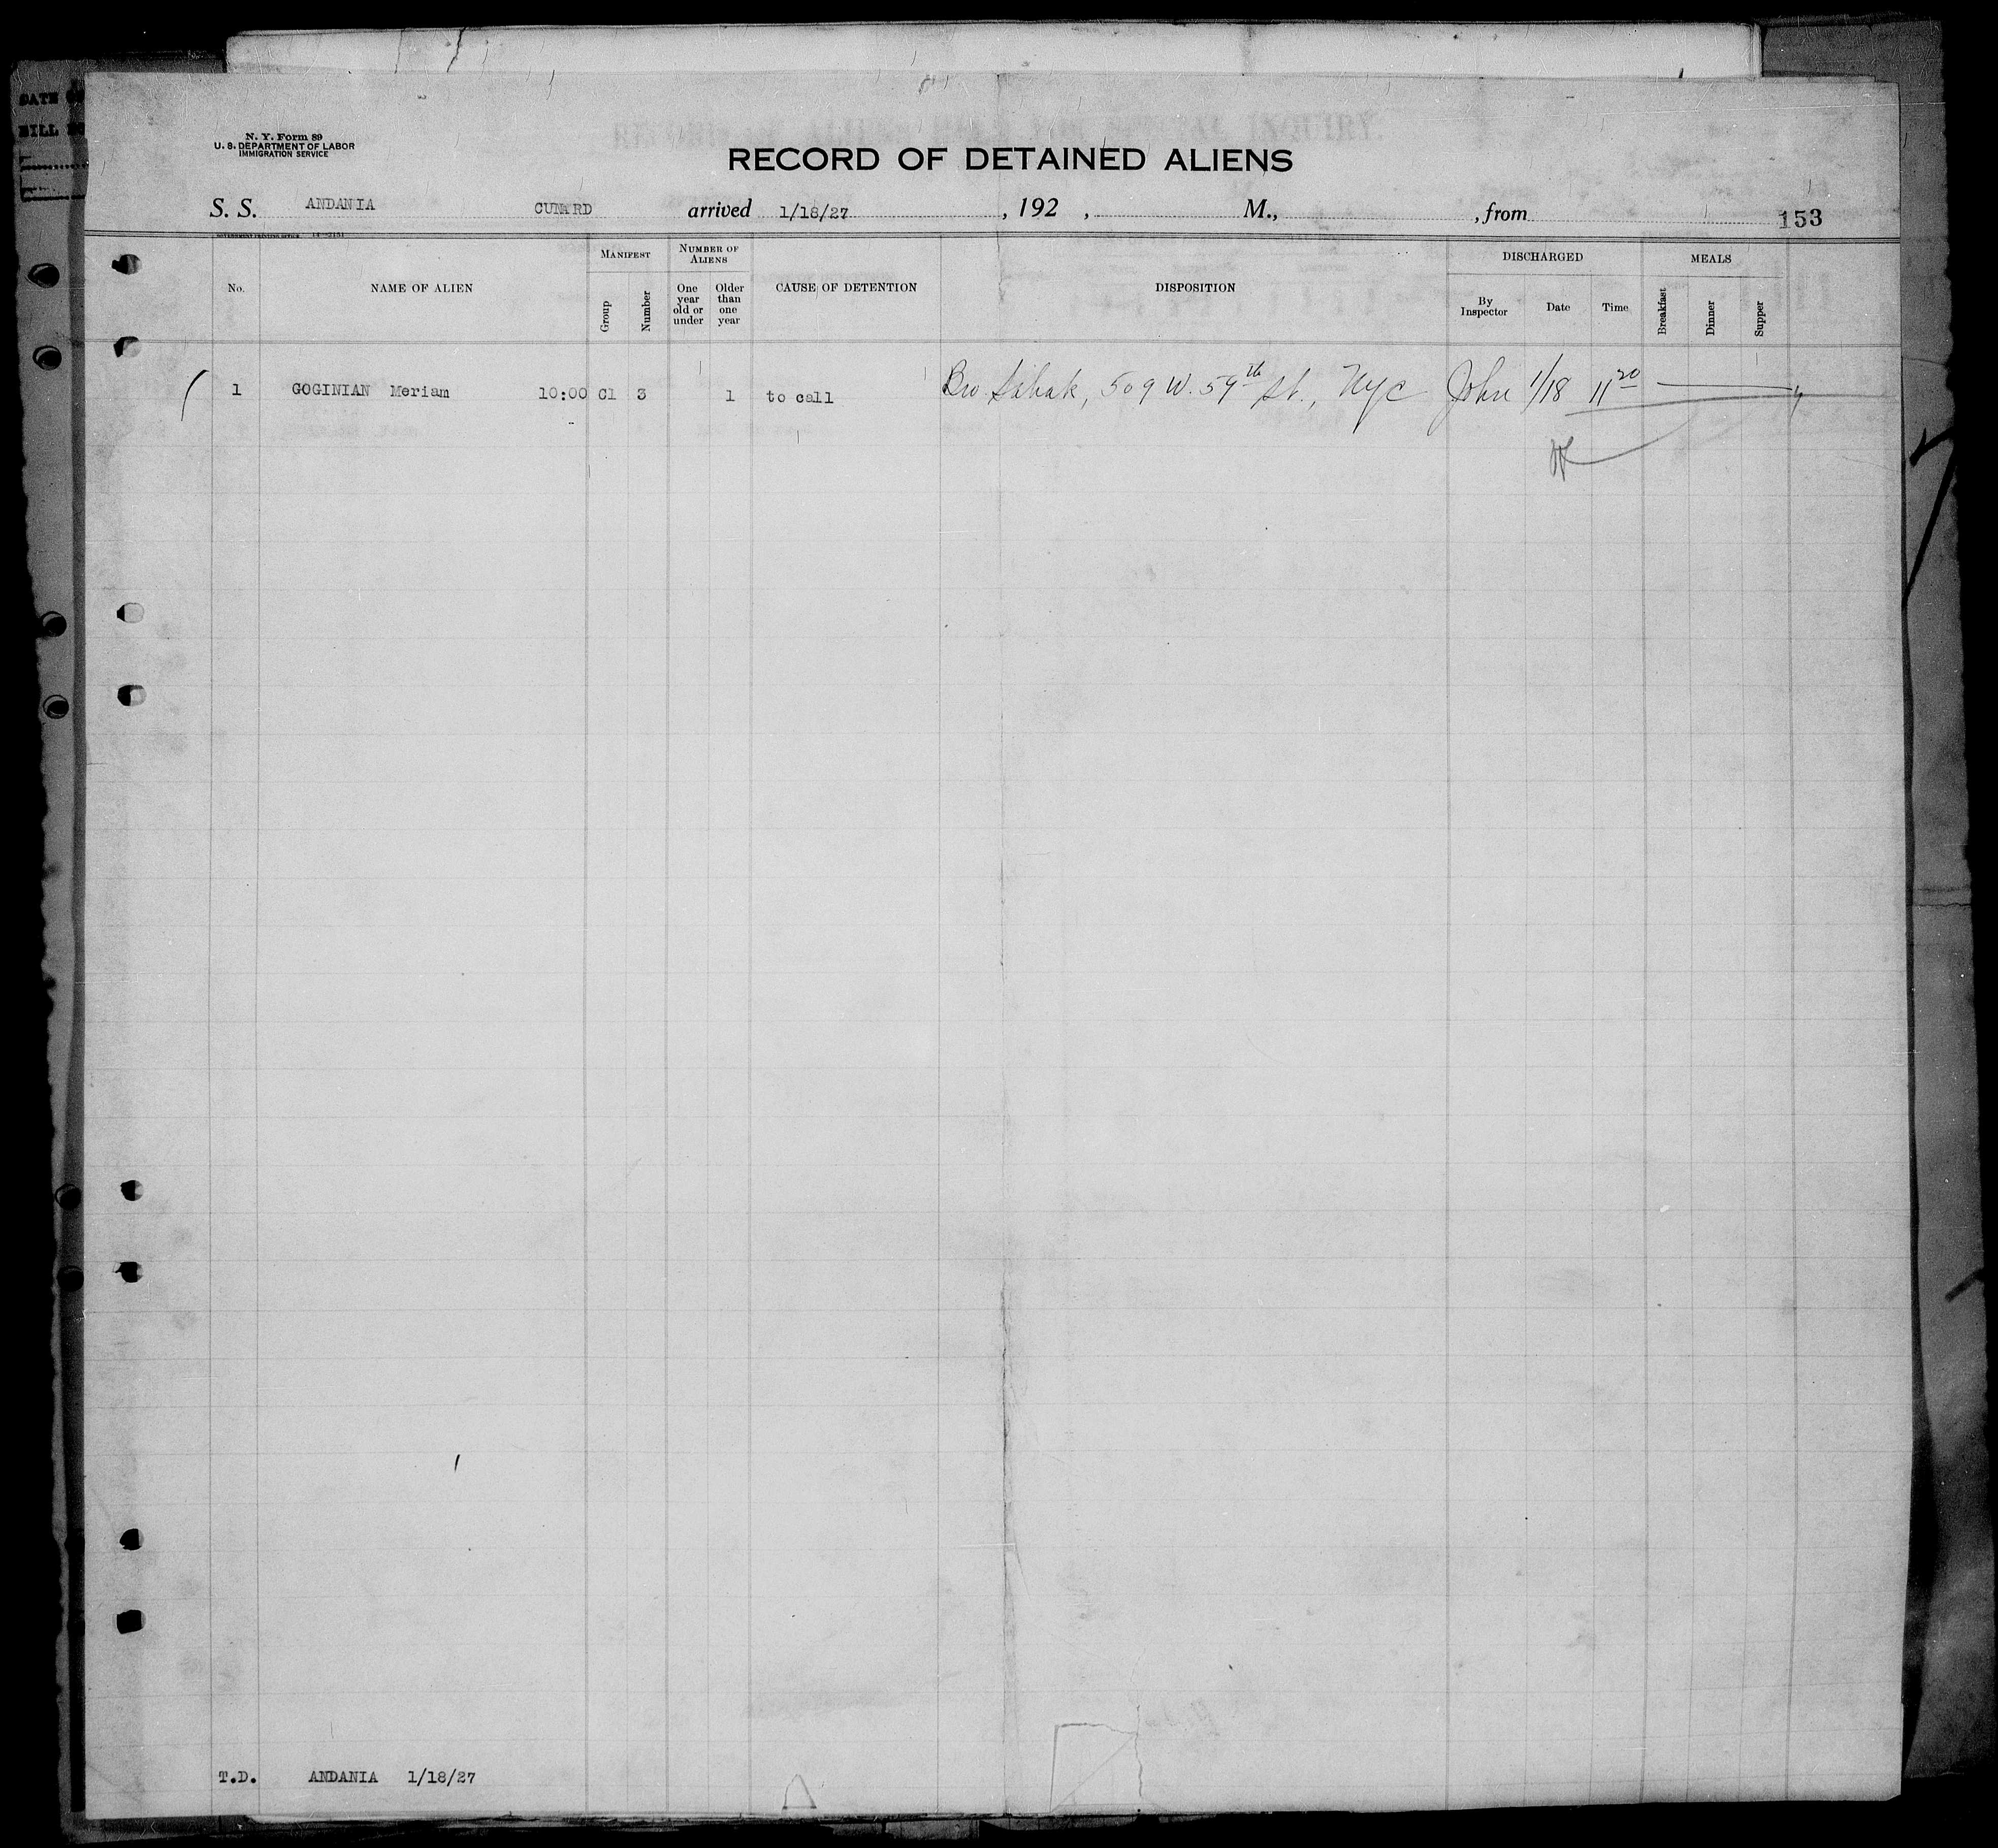 DATE
BILL
N. Y. Form 89
U. S. DEPARTMENT OF LABOR
IMMIGRATION SERVICE
RECORD OF DETAINED ALIENS
S. S. ANDANIA CUNARD arrived 1/18/27, 192 , M., , from 153
No. NAME OF ALIEN MANIFEST Group Number NUMBER OF ALIENS One year old or under Older than one year CAUSE OF DETENTION DISPOSITION DISCHARGED By Inspector Date Time MEALS Breakfast Dinner Supper
1 GOGINIAN Meriam 10:00 C1 3 1 to call Bro. Sahak, 509 W. 59th St., Nyc John 1/18 11 20
T.D. ANDANIA 1/18/27